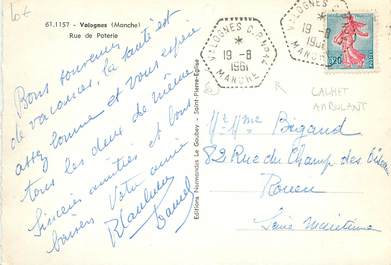 10€
61.1157 - Valognes (Manche)
Rue de Poterie
Bons souvenirs
de vacances, la santé est
assez bonne et vous espère
tous les deux de même
Sincères amitiés et bons
baisers Votre amie
Daniel
Editions Normandes Le Goubey - Saint-Pierre-Eglise
VALOGNES C.P. N° 4
*
19-8
1961
MANCHE
VALOGNES
*
19-8
1961
MANCHE
0,20
CACHET
AMBULANT
M. et Mme Brigand
82 Rue du Champ des Oiseaux
Rouen
Seine Maritime